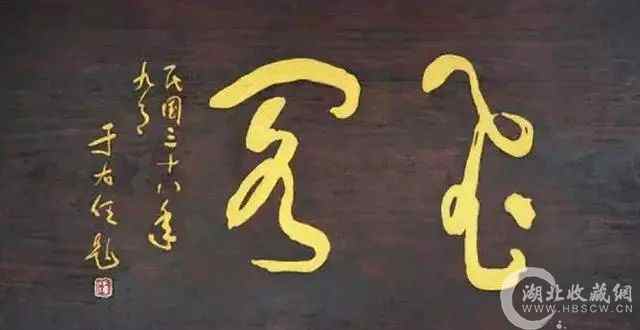 飛閣
民国三十八年
九月
于右任題
湖北收藏網
WWW.HBSCW.CN